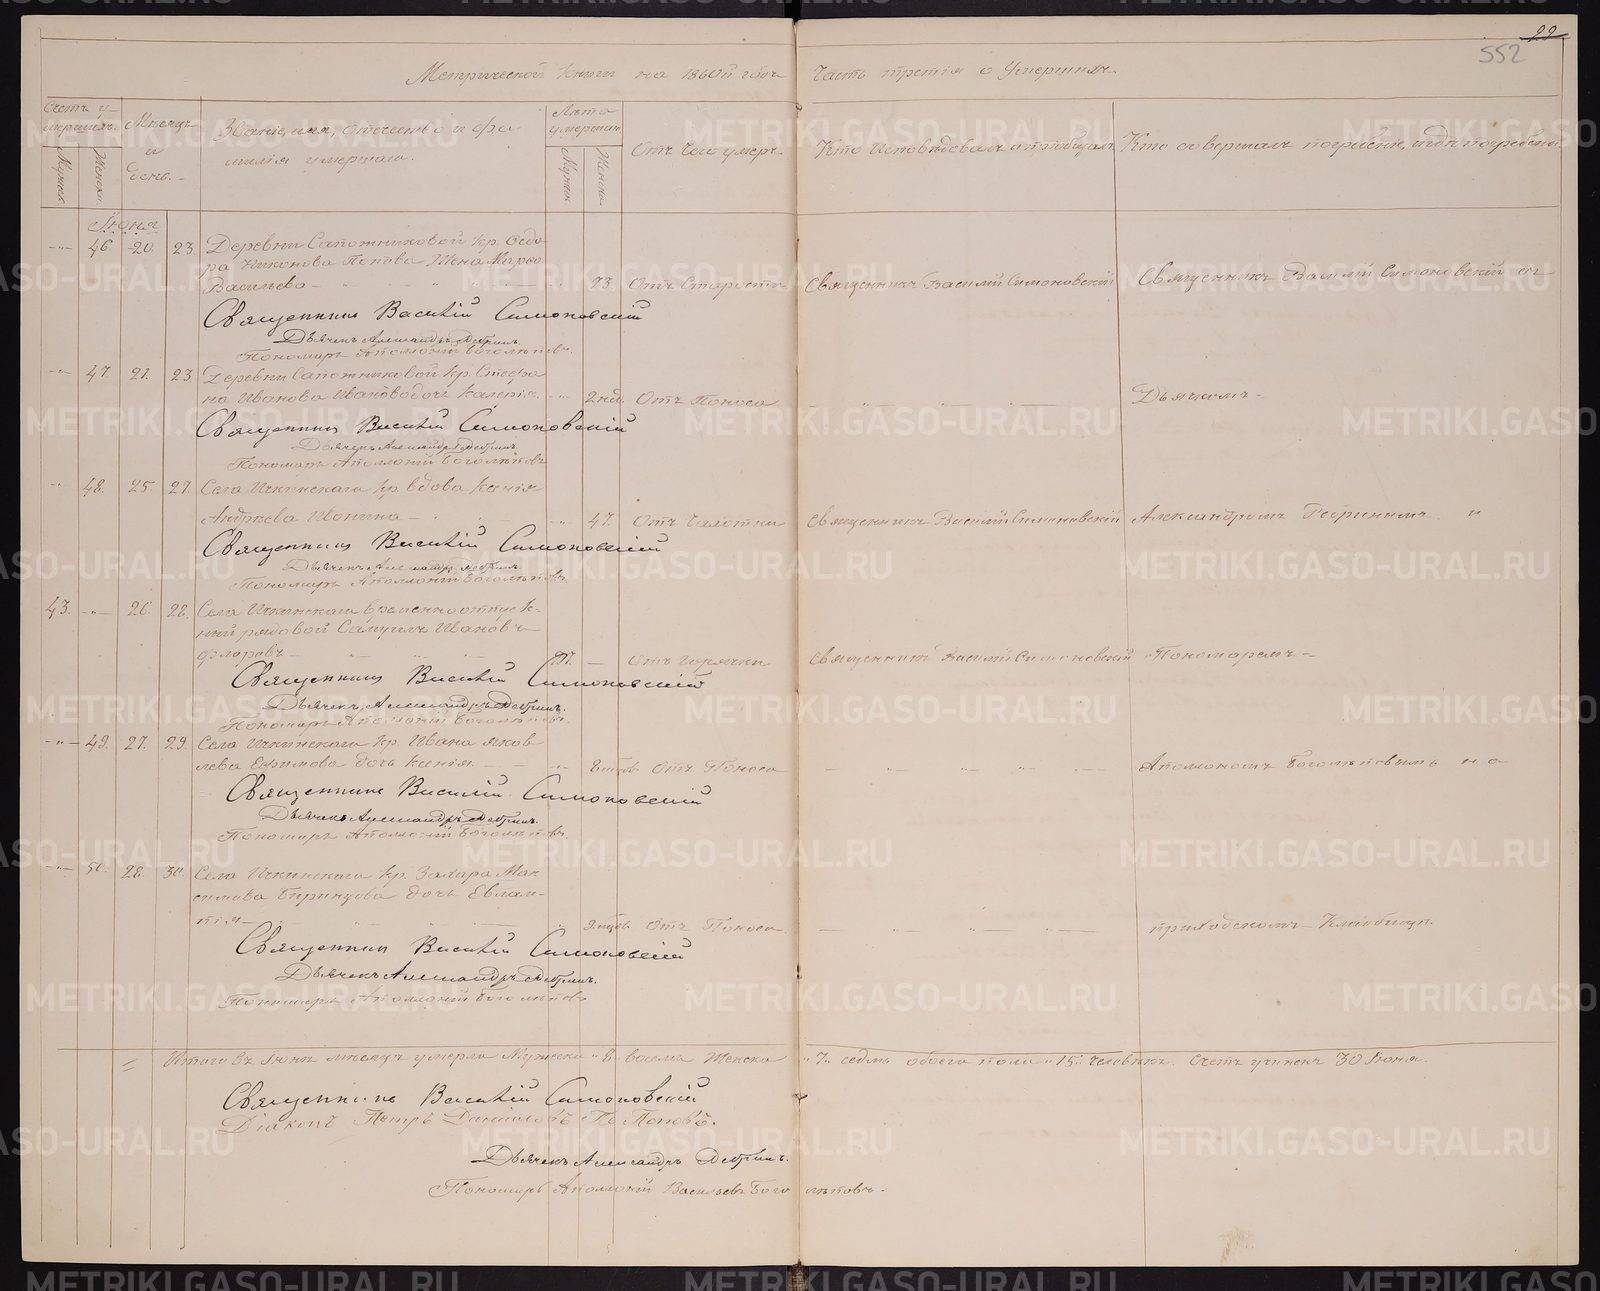 22
552
Метрической книги на 1860й годъ Часть третія о Умершихъ
Счетъ умершихъ.
Мужеск.
Женск.
Мѣсяцъ и день.
Званіе, имя, отечество и фамилія умершаго.
Лѣта умершаго
Мужеск.
Женск.
Отъ чего умеръ
Кто исповѣдовалъ и пріобщалъ
Кто совершалъ погребеніе, и гдѣ погребены
Іюня
46 20 23 Деревни Сапожниковой кр. Ѳедо
ра Никонова Попова жена Марѳа
Васильева 73. Отъ Старости Священникъ Василій Симоновскій Священникъ Василій Симоновскій съ
Священникъ Василій Симоновскій
Дьячекъ Александръ
Пономарь Аполлоній Боголѣповъ.
47. 21. 23. Деревни Сапожниковой кр. Стефа
на Иванова Иванова дочь Калерія 2 нед. Отъ Поноса Дьячкомъ
Священникъ Василій Симоновскій
Дьячекъ Александръ
Пономарь Аполлоній Боголѣповъ
48. 25. 27. Села Ичкинскаго кр. вдова Ксенія
Андреева Ивонина 47. Отъ Чахотки Священникъ Василій Симоновскій Александромъ
Священникъ Василій Симоновскій
Дьячекъ Александръ
Пономарь Аполлоній Боголѣповъ.
43. 26. 28. Села Ичкинскаго временноотпуск-
ный рядовой Самуилъ Ивановъ
Отъ горячки Священникъ Василій Симоновскій Пономаремъ
Священникъ Василій Симоновскій
Дьячекъ Александръ
Пономарь Аполлоній Боголѣповъ.
49. 27. 29. Села Ичкинскаго кр. Ивана Яков
лева Ефимова дочь Ксенія Отъ Поноса Аполлономъ Боголѣповымъ на
Священникъ Василій Симоновскій
Дьячекъ Александръ
Пономарь Аполлоній Боголѣповъ.
50. 28. 30. Села Ичкинскаго кр. Захара Мак
симова дочь Евлам-
пія Отъ Поноса приходскомъ Кладбищѣ.
Священникъ Василій Симоновскій
Дьячекъ Александръ
Пономарь Аполлоній Боголѣповъ
Итого въ Іюнѣ мѣсяцѣ умерло Мужеска 8. восемь Женска 7. седмь обоего пола 15. человѣкъ. Счетъ учиненъ 30 Іюня.
Священникъ Василій Симоновскій
Діаконъ Петръ Поповъ.
Дьячекъ Александръ
Пономарь Аполлоній Васильевъ Боголѣповъ.
METRIKI.GASO-URAL.RU